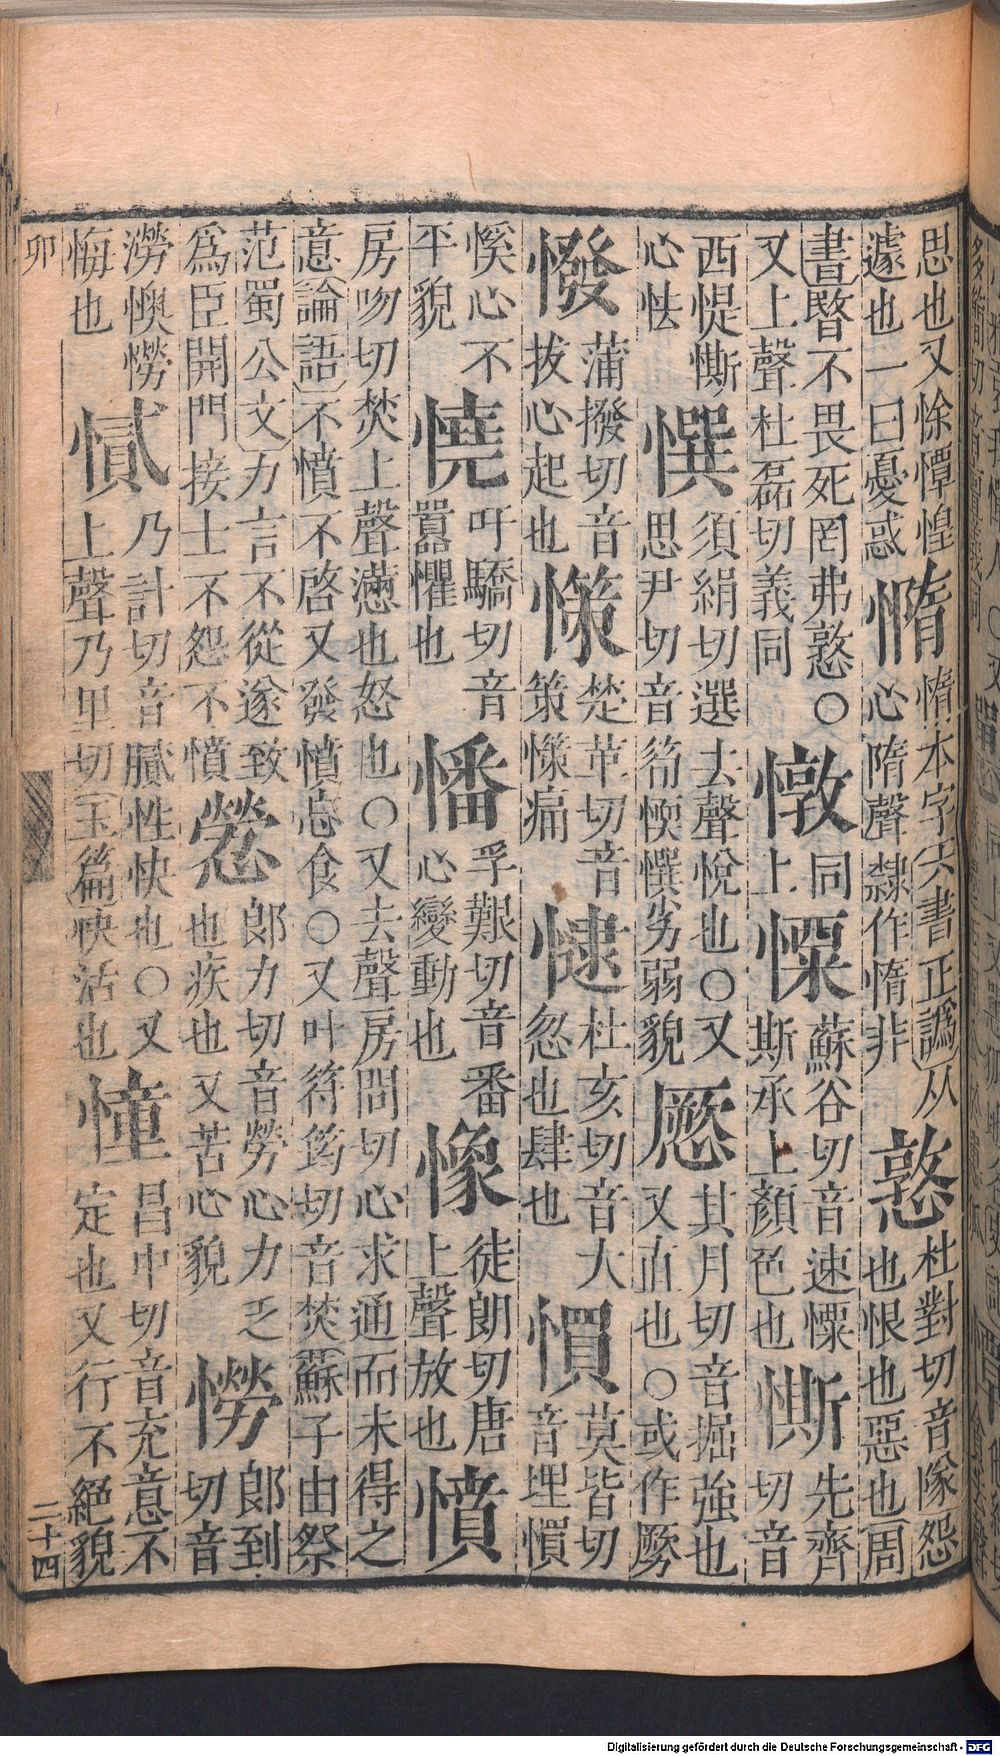 思也又悇憛惶遽也一曰憂惑憜憜本字〔六書正譌〕从心隋聲隸作惰非憝杜對切音隊怨也恨也惡也周
書暋不畏死罔弗憝〇又上聲杜磊切義同憞同上憟蘇谷切音速憟斯承上顏色也先齊切音
西惿心怯㦏須絹切選去聲悅也〇又思尹切音筍愞㦏劣弱貌其月切音掘強也又直也〇或作
蒲撥切音拔心起也憡楚革切音策憡痛杜亥切音大忽也肆也莫皆切音埋
心不平貌憢吁驕切音囂懼也憣孚艱切音番心變動也徒朗切唐上聲放也憤
房吻切焚上聲懣也怒也〇又去聲房問切心求通而未得之
意〔論語〕不憤不啓又發憤忘食〇又叶符筠切音焚〔蘇子由祭
范蜀公文〕力言不從遂致爲臣開門接士不怨不憤憥郞力切音勞心力乏也疾也又苦心貌憦郞到切音
澇懊憦悔也乃計切音膩性快也〇又上聲乃里切〔玉篇〕快活也憧昌中切音充意不定也又行不絕貌
卯
二十四
Digitalisierung gefördert durch die Deutsche Forschungsgemeinschaft - DFG